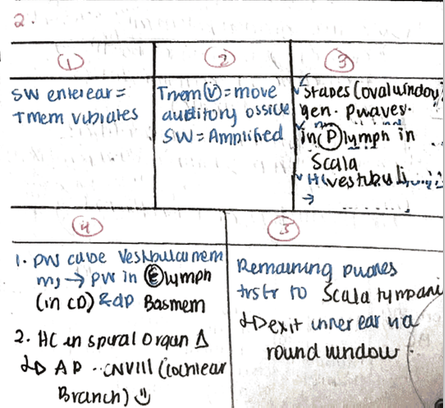 2.
①
SW enter ear =
Tmem vibrates
②
Tmem Ⓥ = move
auditory ossicle
SW = Amplified
③
Stapes (oval window)
gen. Pwaves.
in Ⓟlymph in
Scala
vestibuli
→
④
1. PW cause Vestibular mem
→ PW in Ⓔlymph
(in CD) & dp Basmem
2. HC in spiral organ Δ
↳ AP -- CNVIII (cochlear
Branch) ☺
⑤
Remaining pwaves
trsfr to Scala tympani
↳ exit inner ear via
round window.